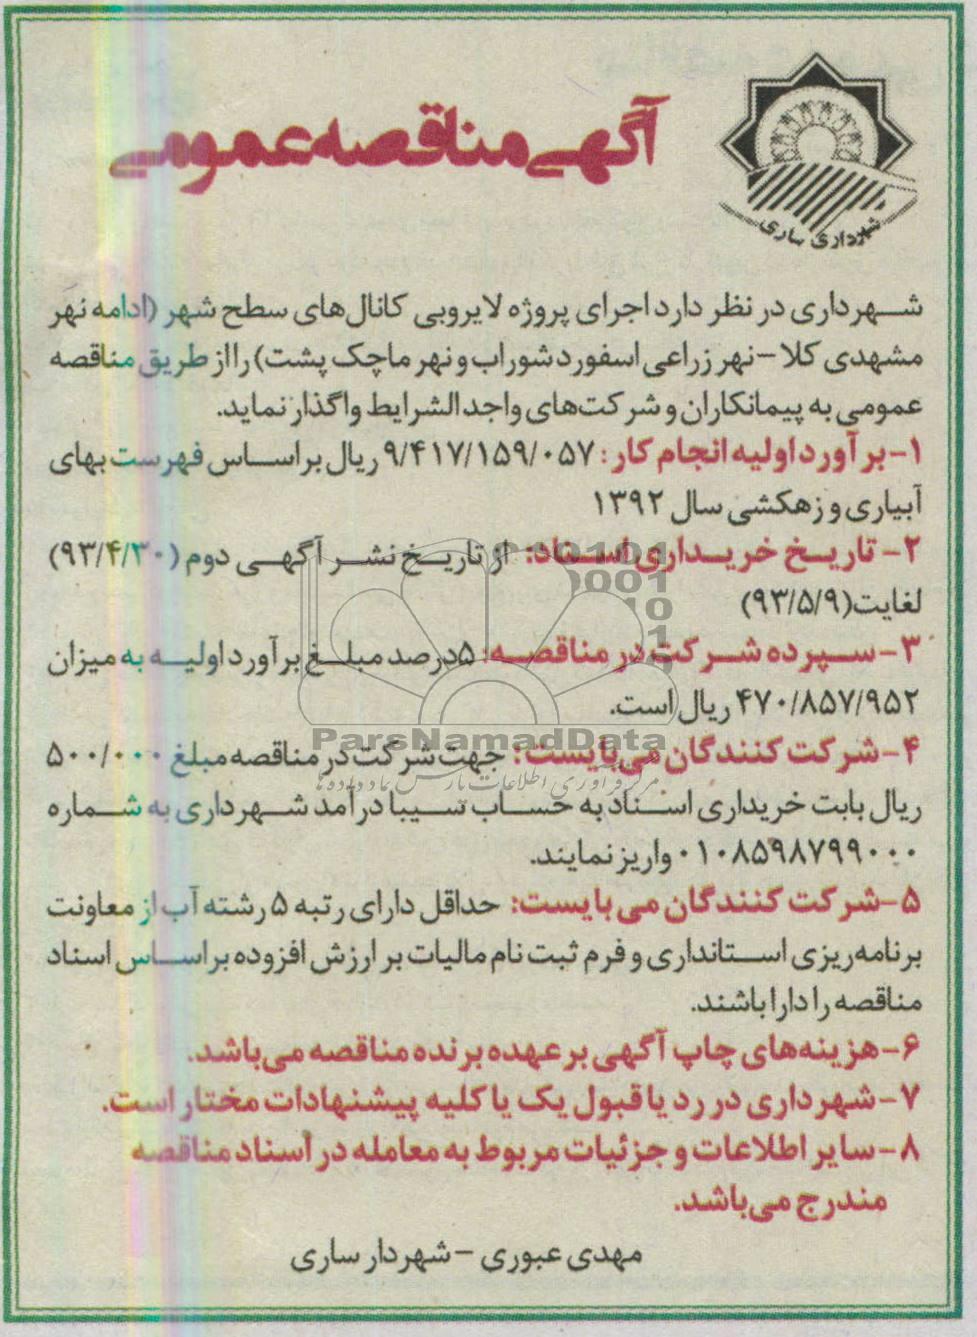 آگهی مناقصه عمومی
شهرداری ساری
شهرداری در نظر دارد اجرای پروژه لایروبی کانال‌های سطح شهر (ادامه نهر
مشهدی کلا - نهر زراعی اسفورد شوراب و نهر ماچک پشت) را از طریق مناقصه
عمومی به پیمانکاران و شرکت‌های واجد الشرایط واگذار نماید.
۱- برآورد اولیه انجام کار: ۹/۴۱۷/۱۵۹/۰۵۷ ریال بر اساس فهرست بهای
آبیاری و زهکشی سال ۱۳۹۲
۲- تاریخ خریداری اسناد: از تاریخ نشر آگهی دوم (۹۳/۴/۳۰)
لغایت (۹۳/۵/۹)
۳- سپرده شرکت در مناقصه: ۵ درصد مبلغ برآورد اولیه به میزان
۴۷۰/۸۵۷/۹۵۲ ریال است.
ParsNamadData
۴- شرکت کنندگان می‌بایست: جهت شرکت در مناقصه مبلغ ۵۰۰/۰۰۰
مرکز فرآوری اطلاعات پارس نماد داده ها
ریال بابت خریداری اسناد به حساب سیبا درآمد شهرداری به شماره
۰۱۰۸۵۹۸۷۹۹۰۰۰ واریز نمایند.
۵- شرکت کنندگان می بایست: حداقل دارای رتبه ۵ رشته آب از معاونت
برنامه‌ریزی استانداری و فرم ثبت نام مالیات بر ارزش افزوده بر اساس اسناد
مناقصه را دارا باشند.
۶- هزینه‌های چاپ آگهی بر عهده برنده مناقصه می‌باشد.
۷- شهرداری در رد یا قبول یک یا کلیه پیشنهادات مختار است.
۸- سایر اطلاعات و جزئیات مربوط به معامله در اسناد مناقصه
مندرج می‌باشد.
مهدی عبوری - شهردار ساری